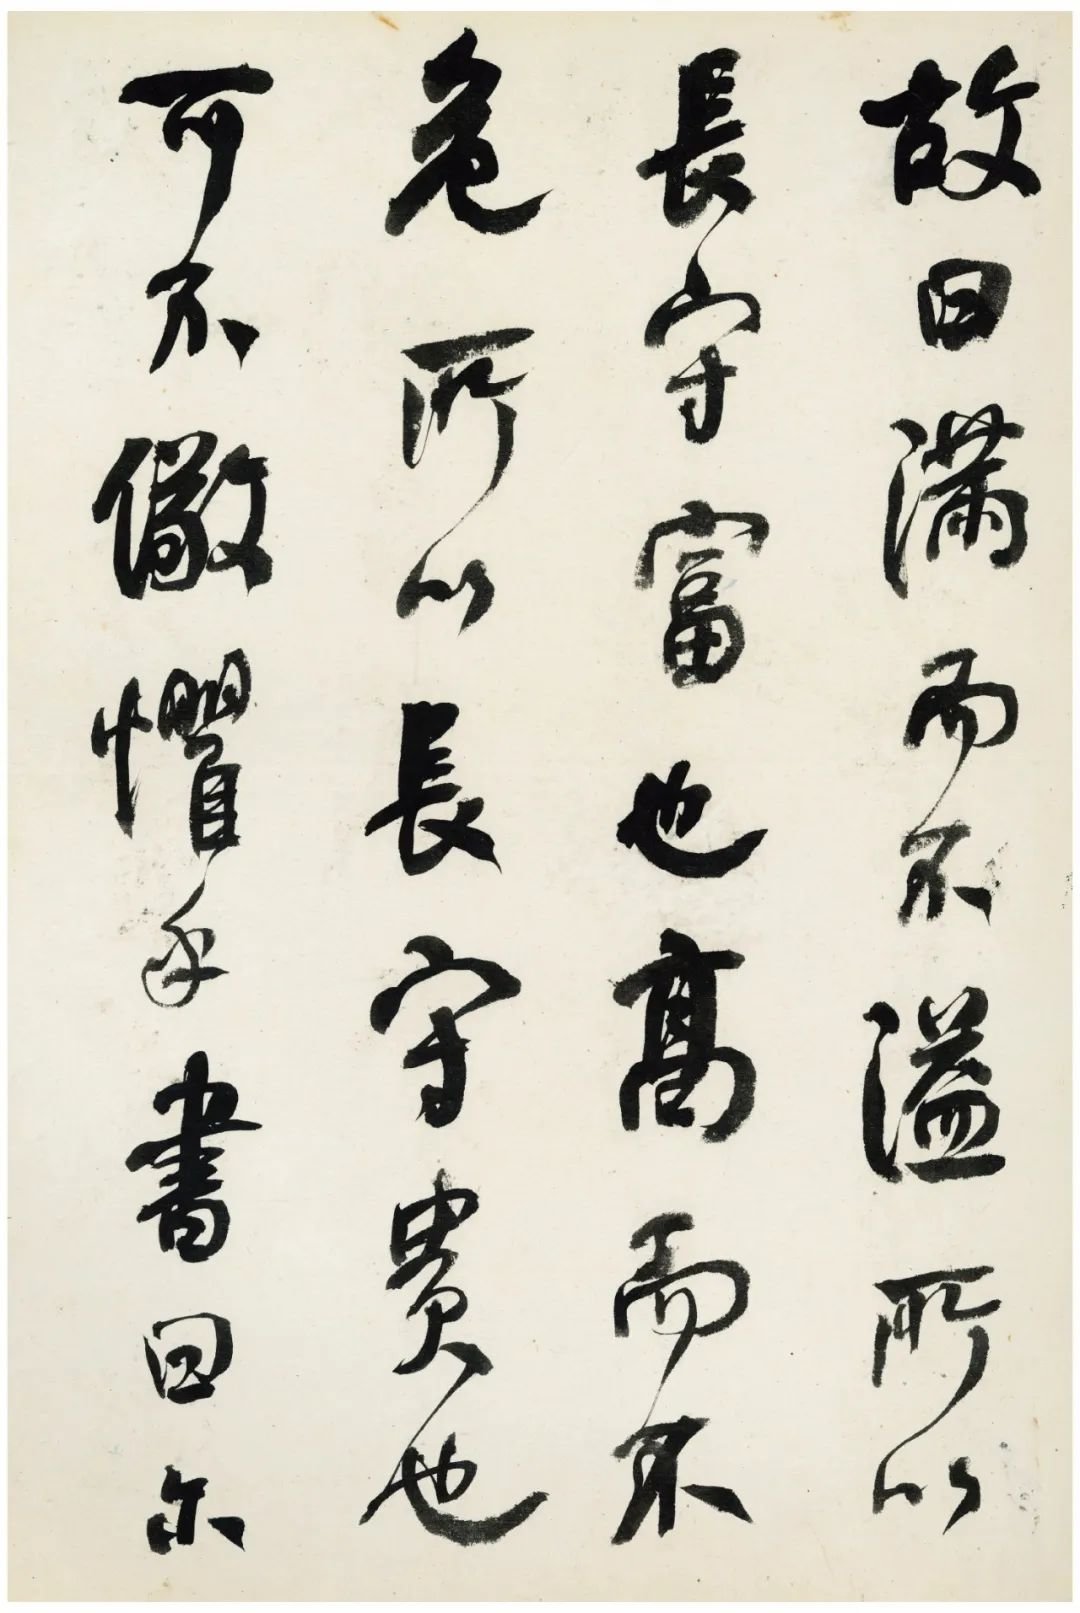 故曰滿而不溢所以
長守富也高而不
危所以長守貴也
可不儆懼乎書曰尔